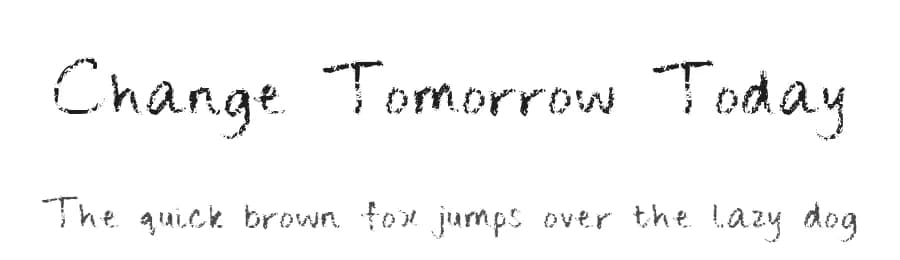 Change Tomorrow Today
The quick brown fox jumps over the lazy dog